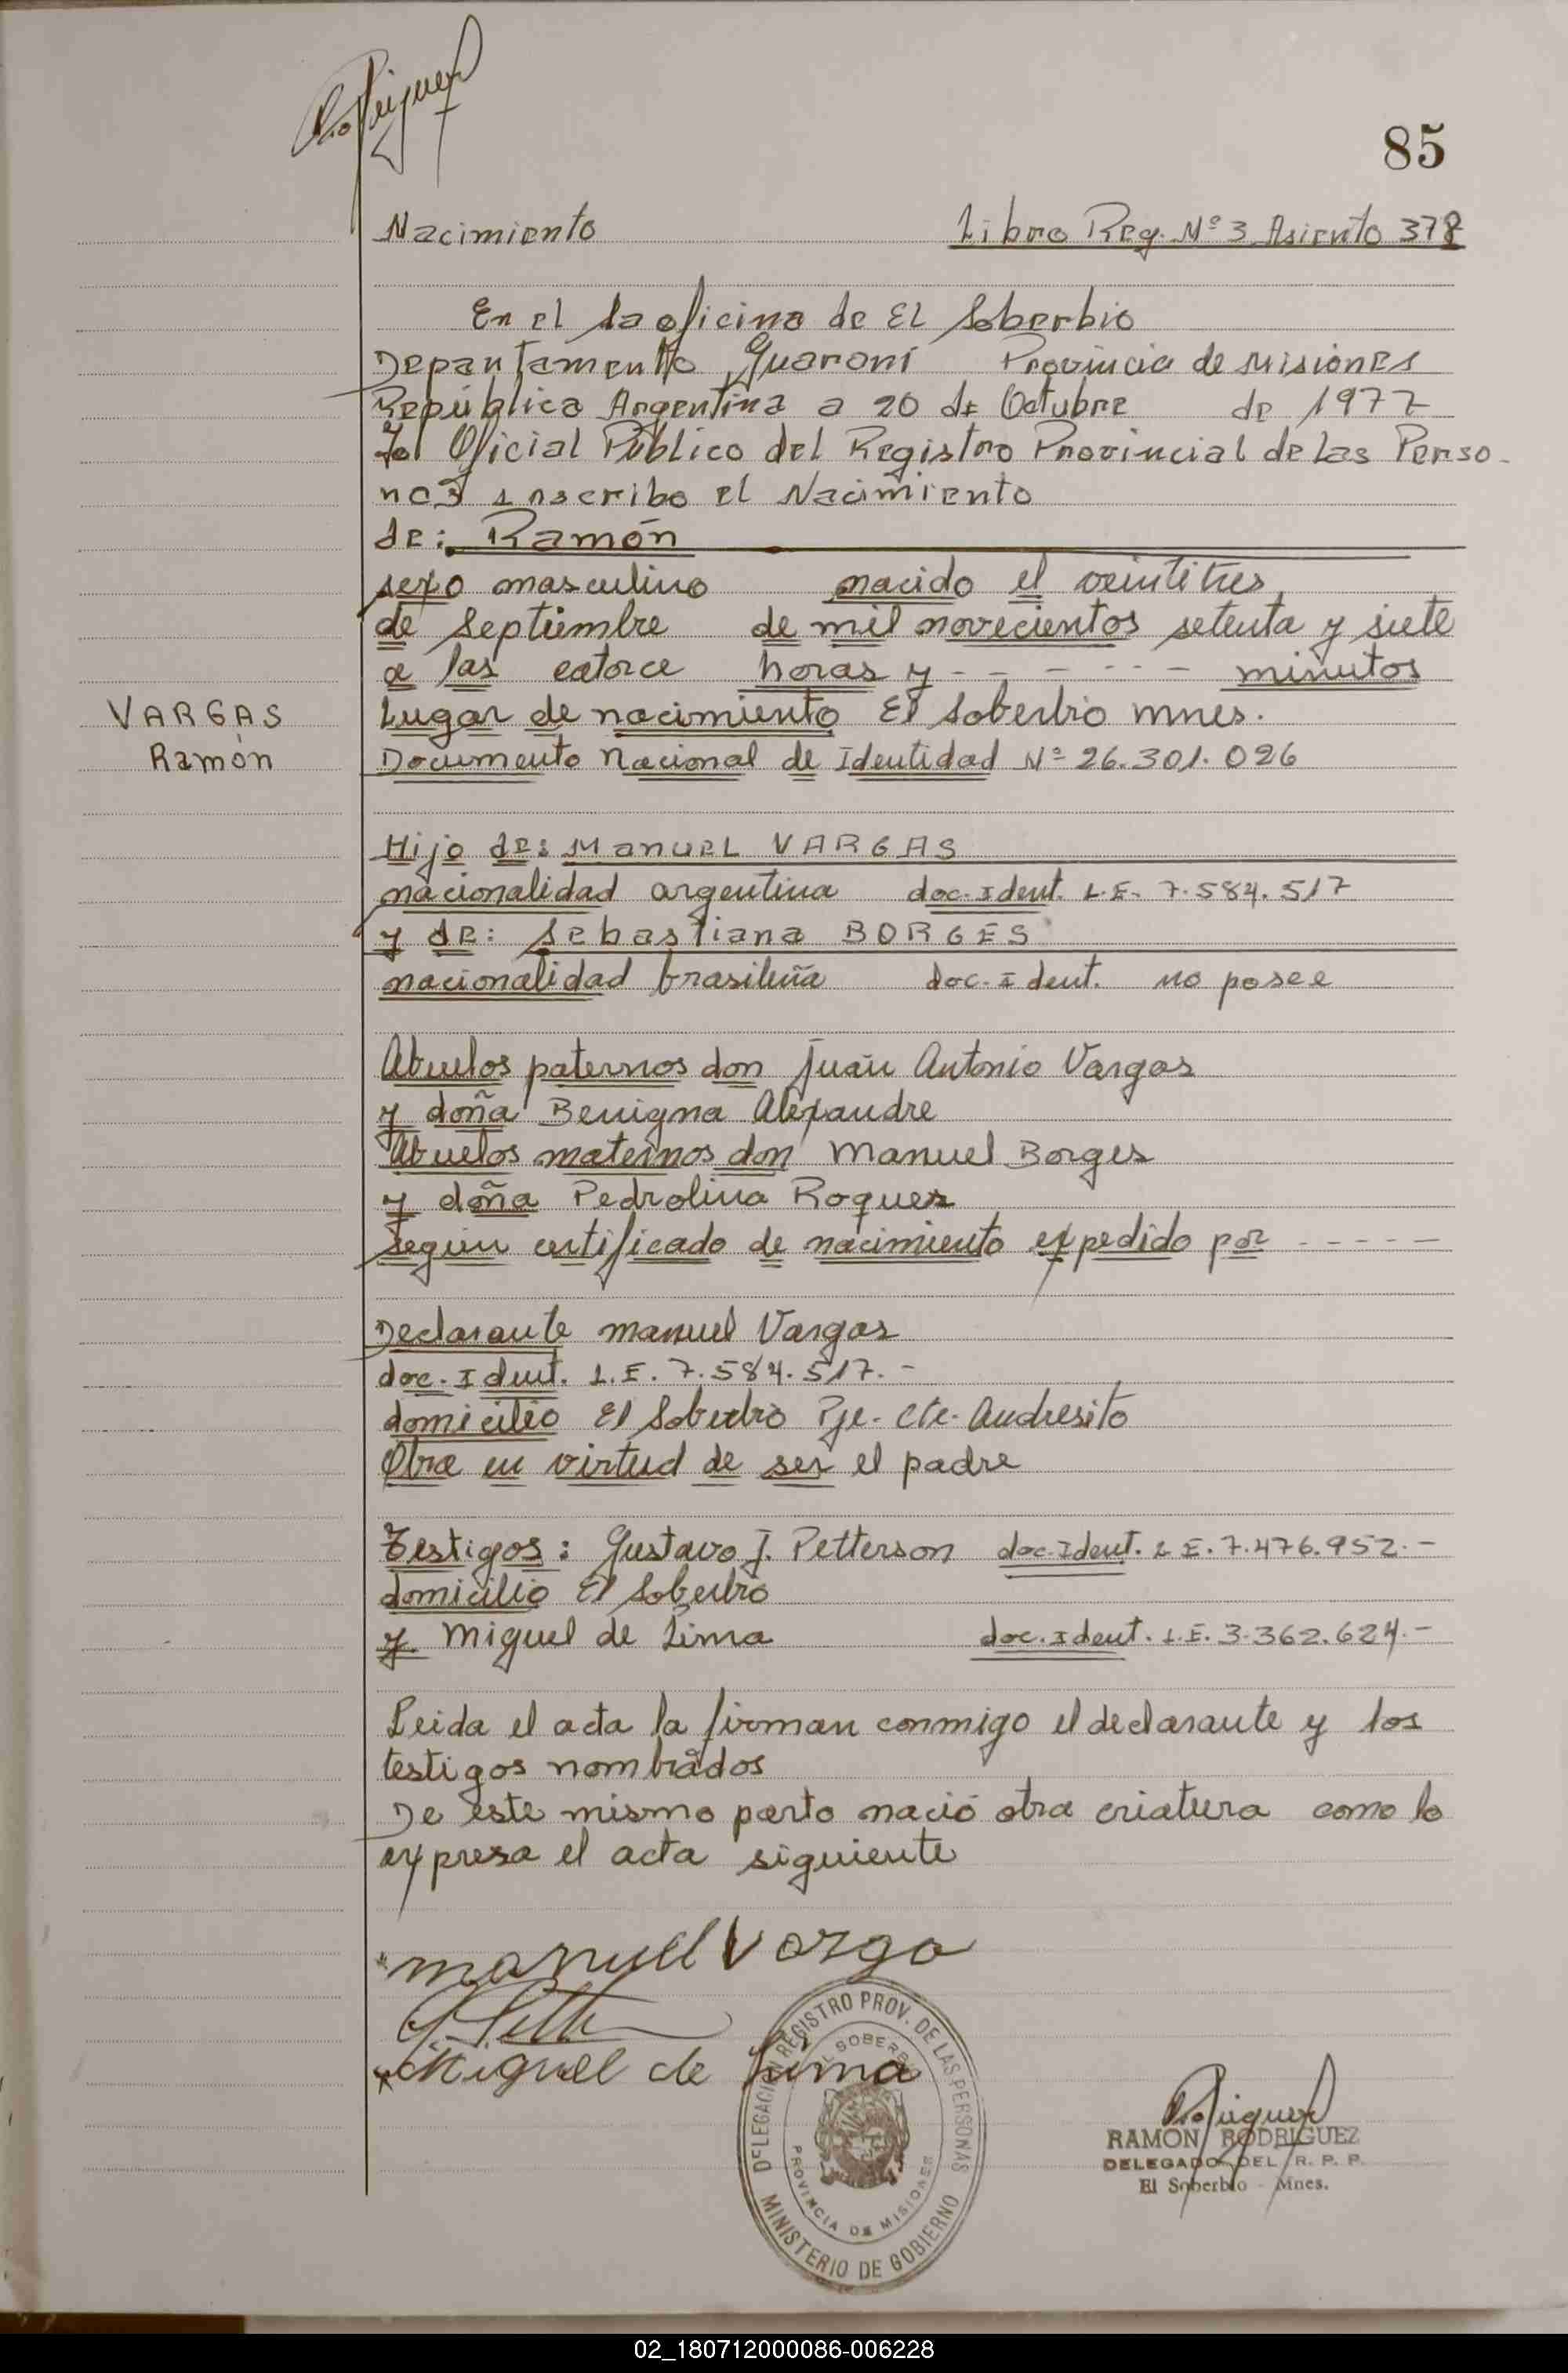 Rodriguez
85
Nacimiento Libro Reg. Nº 3 Asiento 378
En el la oficina de El Soberbio
Departamento Guaraní Provincia de Misiones
República Argentina a 20 de Octubre de 1977
Yo Oficial Público del Registro Provincial de las Perso-
nas inscribo el Nacimiento
de: Ramón
sexo masculino nacido el veintitres
de Septiembre de mil novecientos setenta y siete
a las catorce horas y - - - - - - minutos
VARGAS
Ramón
Lugar de nacimiento El Soberbio Mnes.
Documento Nacional de Identidad Nº 26.301.026
Hijo de: Manuel VARGAS
nacionalidad argentina doc. Ident. L.E. 7.584.517
y de: Sebastiana BORGES
nacionalidad brasileña doc. Ident. no posee
Abuelos paternos don Juan Antonio Vargas
y doña Benigna Alexandre
Abuelos maternos don Manuel Borges
y doña Pedrolina Roquez
según certificado de nacimiento expedido por - - - - -
Declarante Manuel Vargas
doc. Ident. L.E. 7.584.517.-
domicilio El Soberbio Pje. Cte. Andresito
Obra en virtud de ser el padre
Testigos: Gustavo J. Petterson doc. Ident. L.E. 7.476.952.-
domicilio El Soberbio
y Miguel de Lima doc. Ident. L.E. 3.362.624.-
Leida el acta la firman conmigo el declarante y los
testigos nombrados
De este mismo parto nació otra criatura como lo
expresa el acta siguiente
manuel Varga
G. Pett
Miguel de Lima
DELEGACION REGISTRO PROV. DE LAS PERSONAS
EL SOBERBIO
PROVINCIA DE MISIONES
MINISTERIO DE GOBIERNO
Rodriguez
RAMON RODRIGUEZ
DELEGADO DEL R. P. P.
El Soberbio - Mnes.
02_180712000086-006228